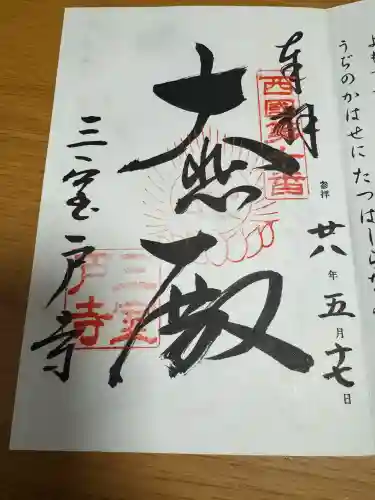 よもすがら
うぢのかはせに たつはしらなみ
奉拝
西國第十番
参拝
廿八年五月十七日
大悲殿
三室戸寺
三室戸寺